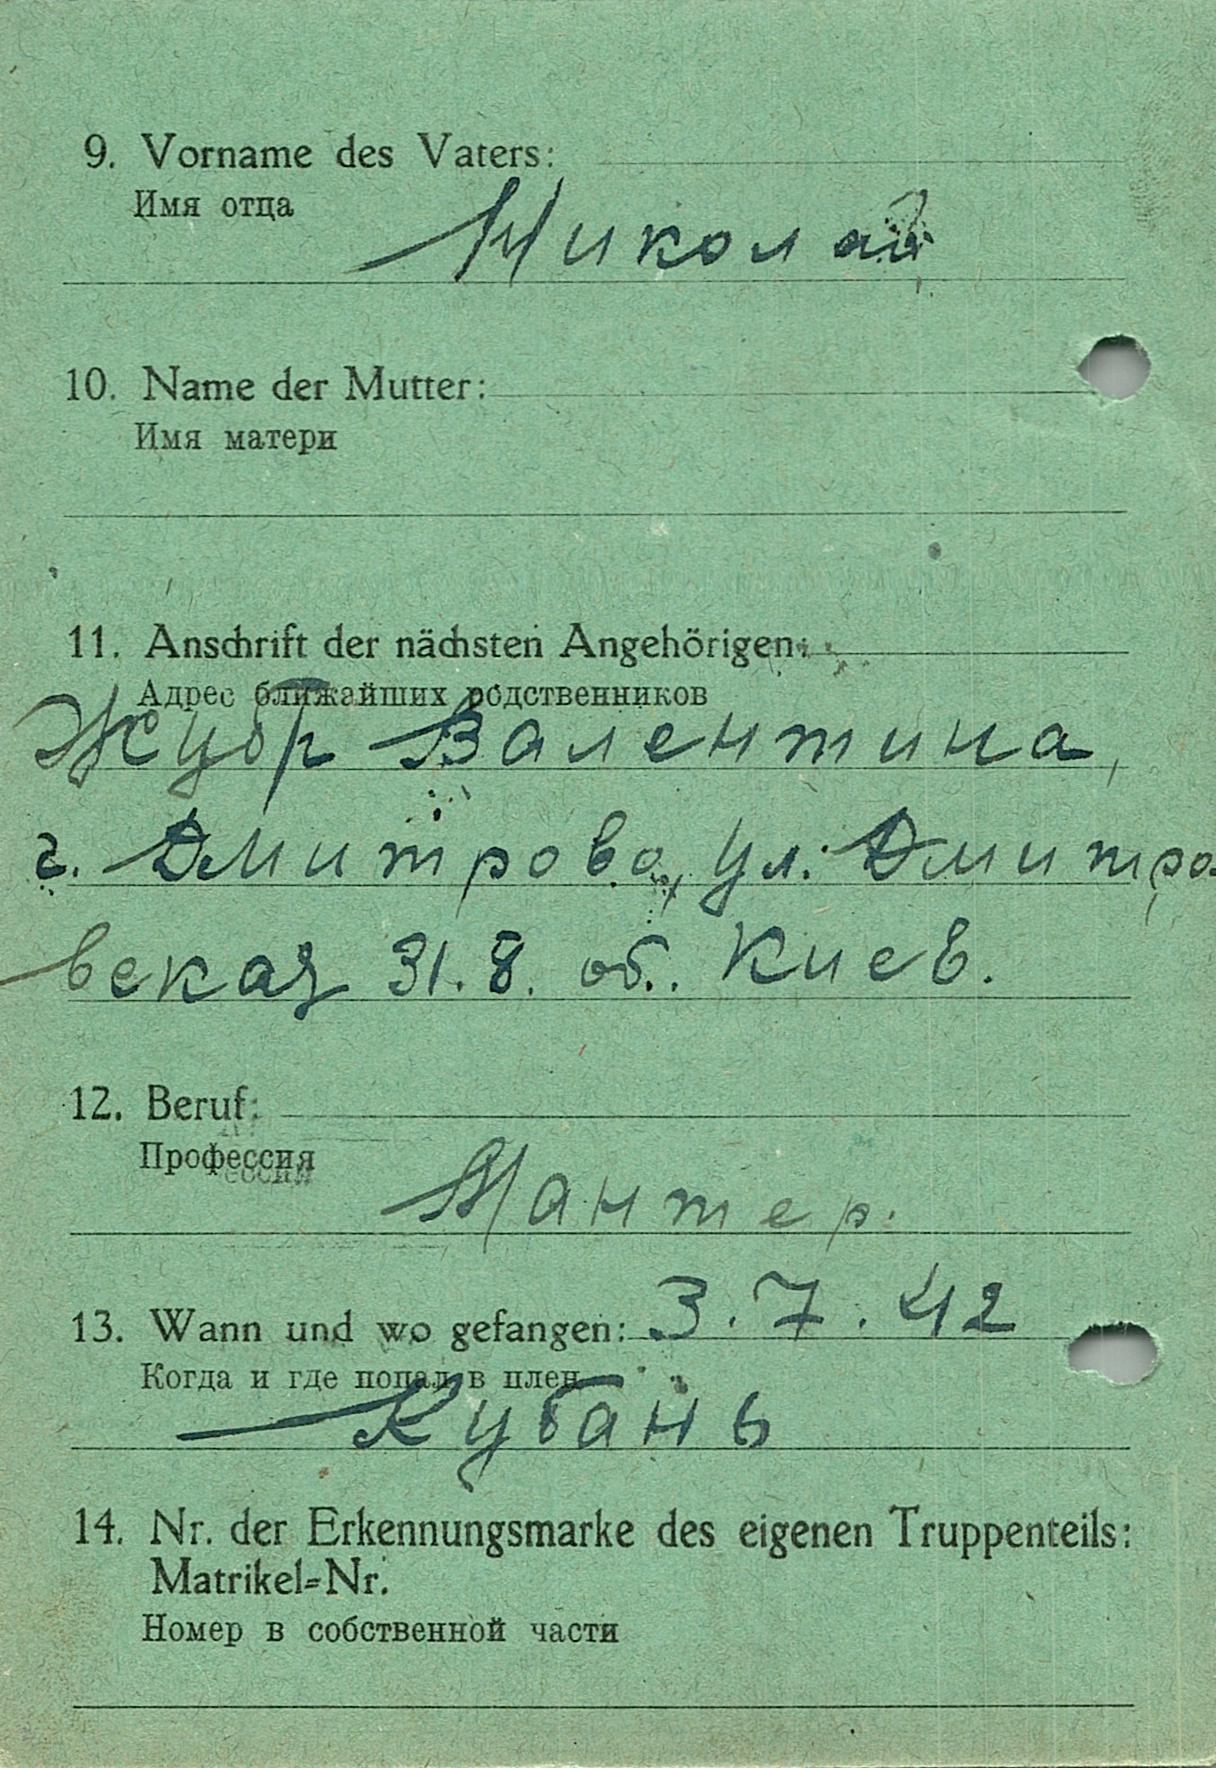 9. Vorname des Vaters:
Имя отца
Николай
10. Name der Mutter:
Имя матери
11. Anschrift der nächsten Angehörigen:
Адрес ближайших родственников
Жубр Валентина,
г. Дмитрово, ул. Дмитро-
вская 31.8. об. Киев.
12. Beruf:
Профессия
Мантер.
13. Wann und wo gefangen: 3.7.42
Когда и где попал в плен
Кубань
14. Nr. der Erkennungsmarke des eigenen Truppenteils:
Matrikel=Nr.
Номер в собственной части